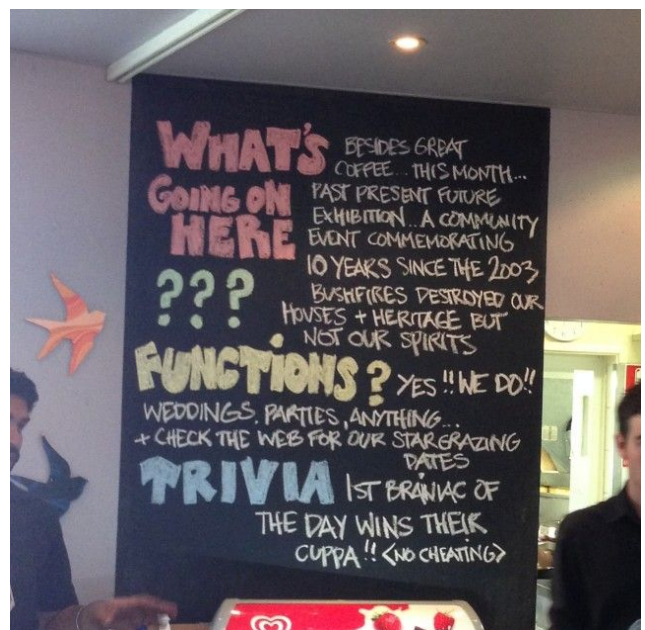 WHAT'S
GOING ON
HERE
???
BESIDES GREAT
COFFEE... THIS MONTH...
PAST PRESENT FUTURE
EXHIBITION... A COMMUNITY
EVENT COMMEMORATING
10 YEARS SINCE THE 2003
BUSHFIRES DESTROYED OUR
HOUSES + HERITAGE BUT
NOT OUR SPIRITS
FUNCTIONS? YES!! WE DO!!
WEDDINGS, PARTIES, ANYTHING...
+ CHECK THE WEB FOR OUR STARGRAZING
DATES
TRIVIA 1ST BRAINIAC OF
THE DAY WINS THEIR
CUPPA!! <NO CHEATING>